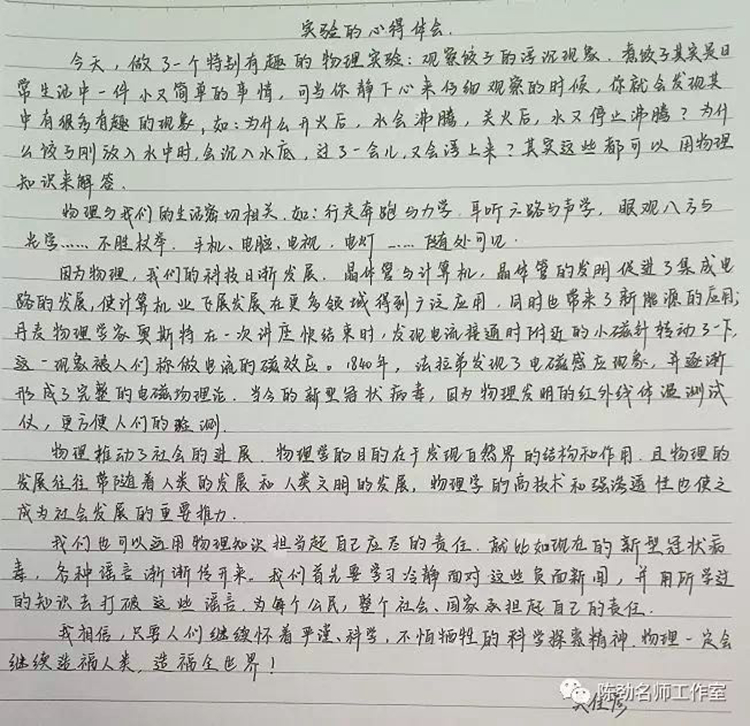 实验的心得体会.
今天，做了一个特别有趣的物理实验：观察饺子的浮沉现象.煮饺子其实是日
常生活中一件小又简单的事情，可当你静下心来仔细观察的时候，你就会发现其
中有很多有趣的现象，如：为什么开火后，水会沸腾，关火后，水又停止沸腾？为什
么饺子刚放入水中时，会沉入水底，过了一会儿，又会浮上来？其实这些都可以用物理
知识来解答.
物理与我们的生活密切相关.如：行走奔跑与力学.耳听六路与声学，眼观八方与
光学……不胜枚举.手机、电脑、电视.电灯……随处可见.
因为物理，我们的科技日渐发展.晶体管与计算机，晶体管的发明促进了集成电
路的发展，使计算机业飞展发展在更多领域得到广泛应用.同时也带来了新能源的应用；
丹麦物理学家奥斯特在一次讲座快结束时，发现电流接通时附近的小磁针转动了一下，
这一现象被人们称做电流的磁效应。1840年，法拉弟发现了电磁感应现象，并逐渐
形成了完整的电磁场理论.当今的新型冠状病毒，因为物理发明的红外线体温测试
仪，更方便人们的监测.
物理推动了社会的进展.物理学的目的在于发现自然界的结构和作用.且物理的
发展往往带随着人类的发展和人类文明的发展，物理学的高技术和强渗透性也使之
成为社会发展的重要推力.
我们也可以运用物理知识担当起自己应尽的责任.就比如现在的新型冠状病
毒，各种谣言渐渐传开来。我们首先要学习冷静面对这些负面新闻，并用所学过
的知识去打破这些谣言.为每个公民，整个社会、国家承担起自己的责任.
我相信，只要人们继续怀着严谨、科学，不怕牺牲的科学探索精神.物理一定会
继续造福人类.造福全世界！
陈劲名师工作室